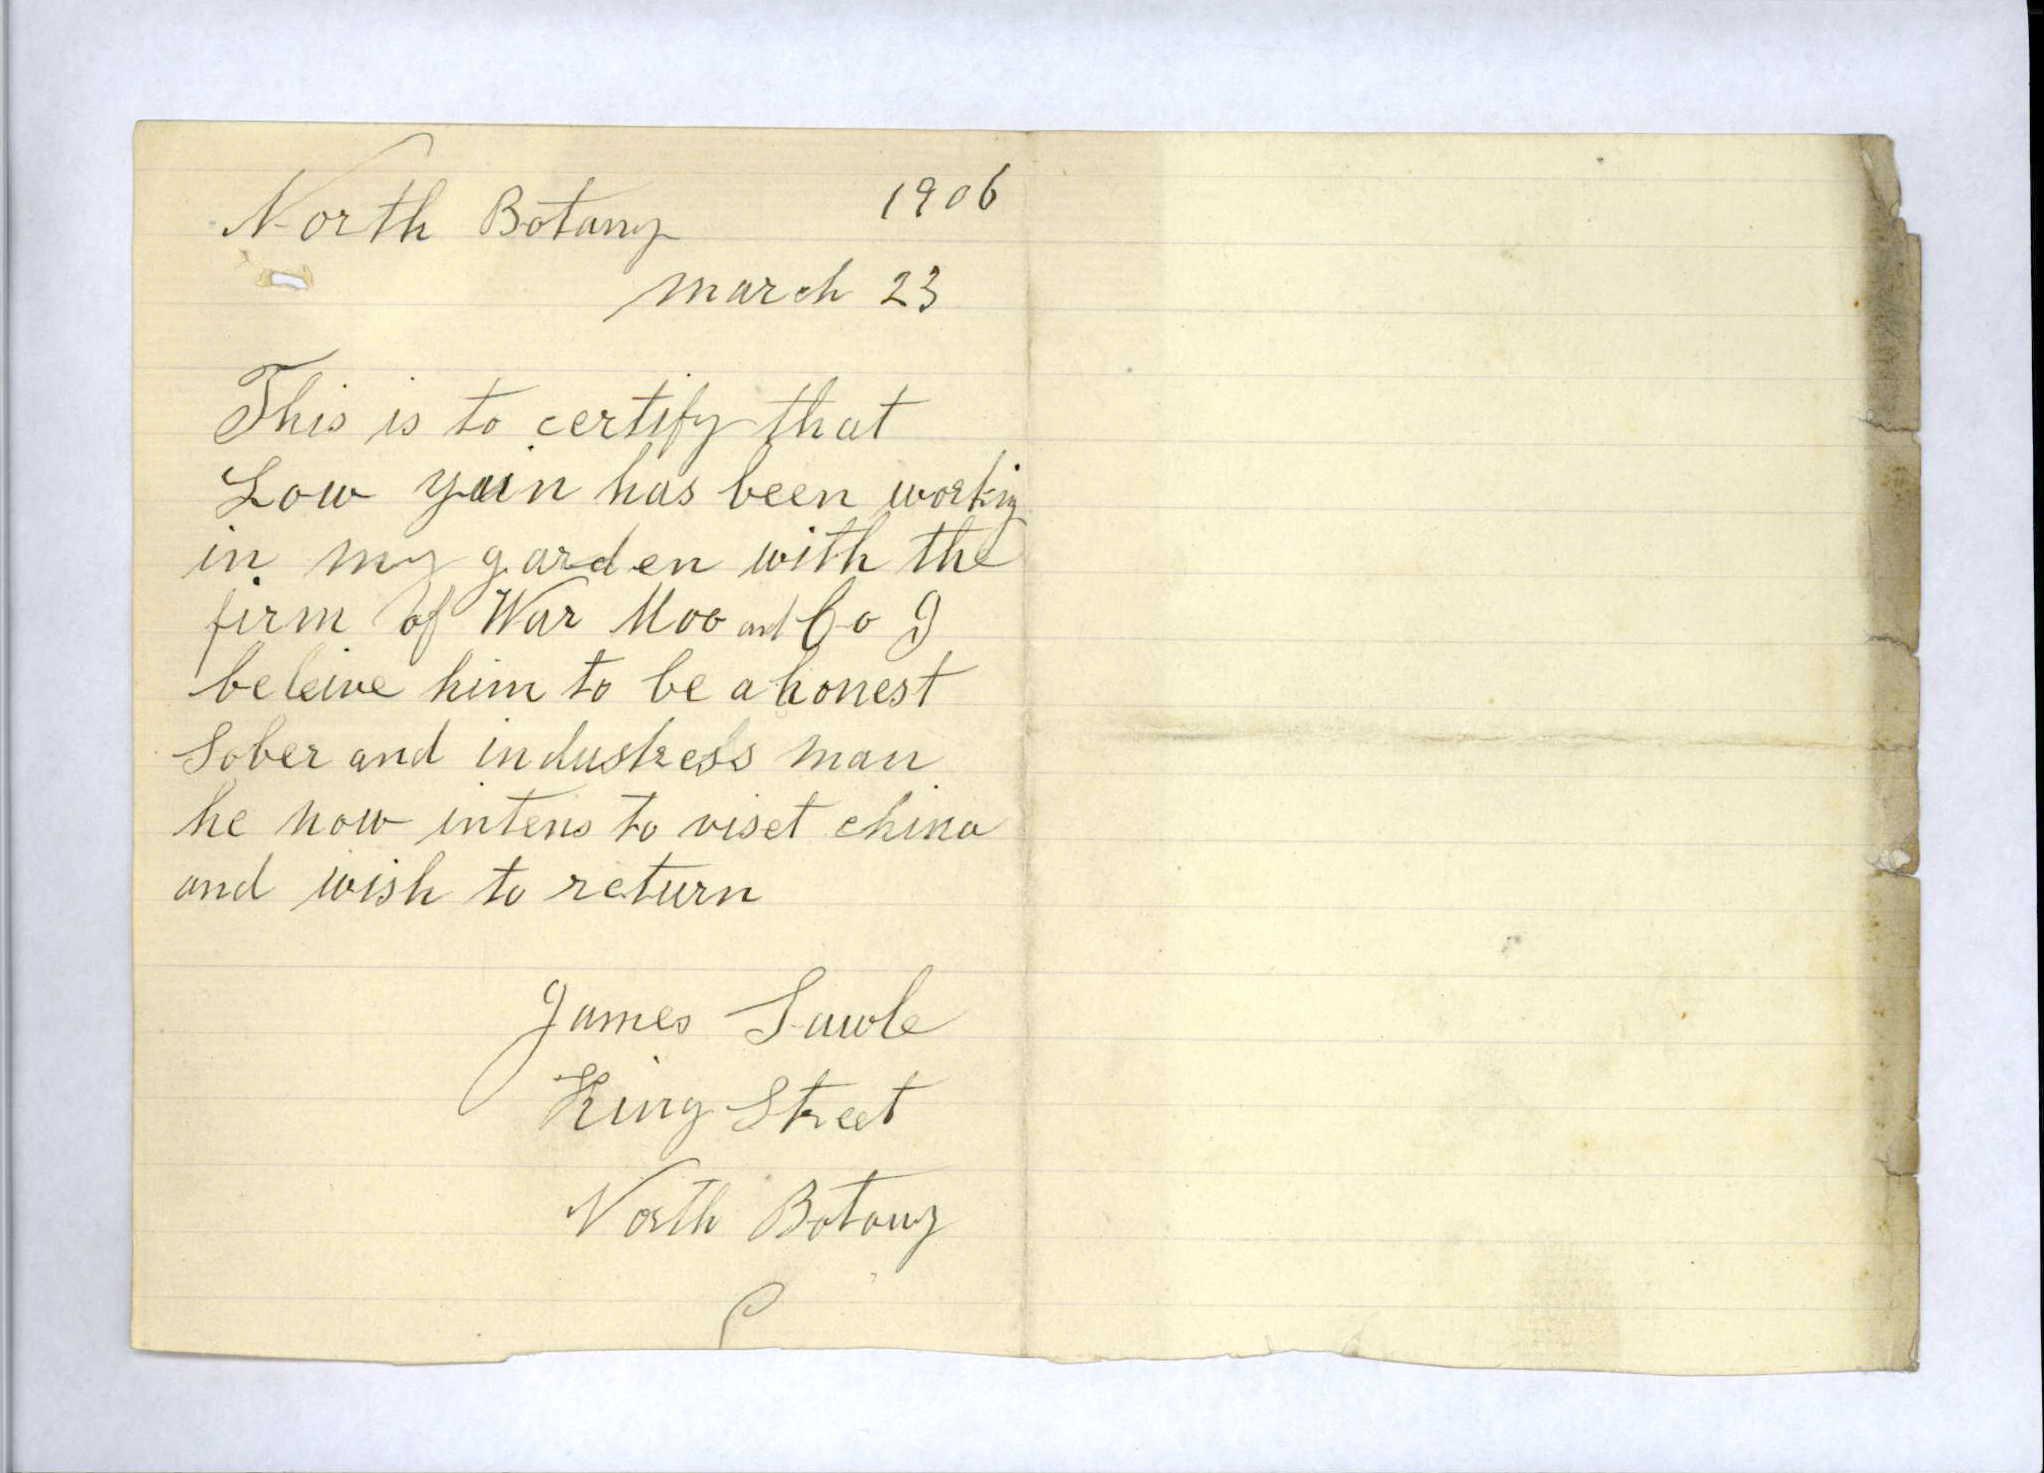 North Botany 1906
march 23
This is to certify that
Low yuin has been workig
in my garden with the
firm of War Moo and Co I
beleive him to be a honest
Sober and industress man
he now intens to viset china
and wish to return
James Sawle
King Street
North Botany